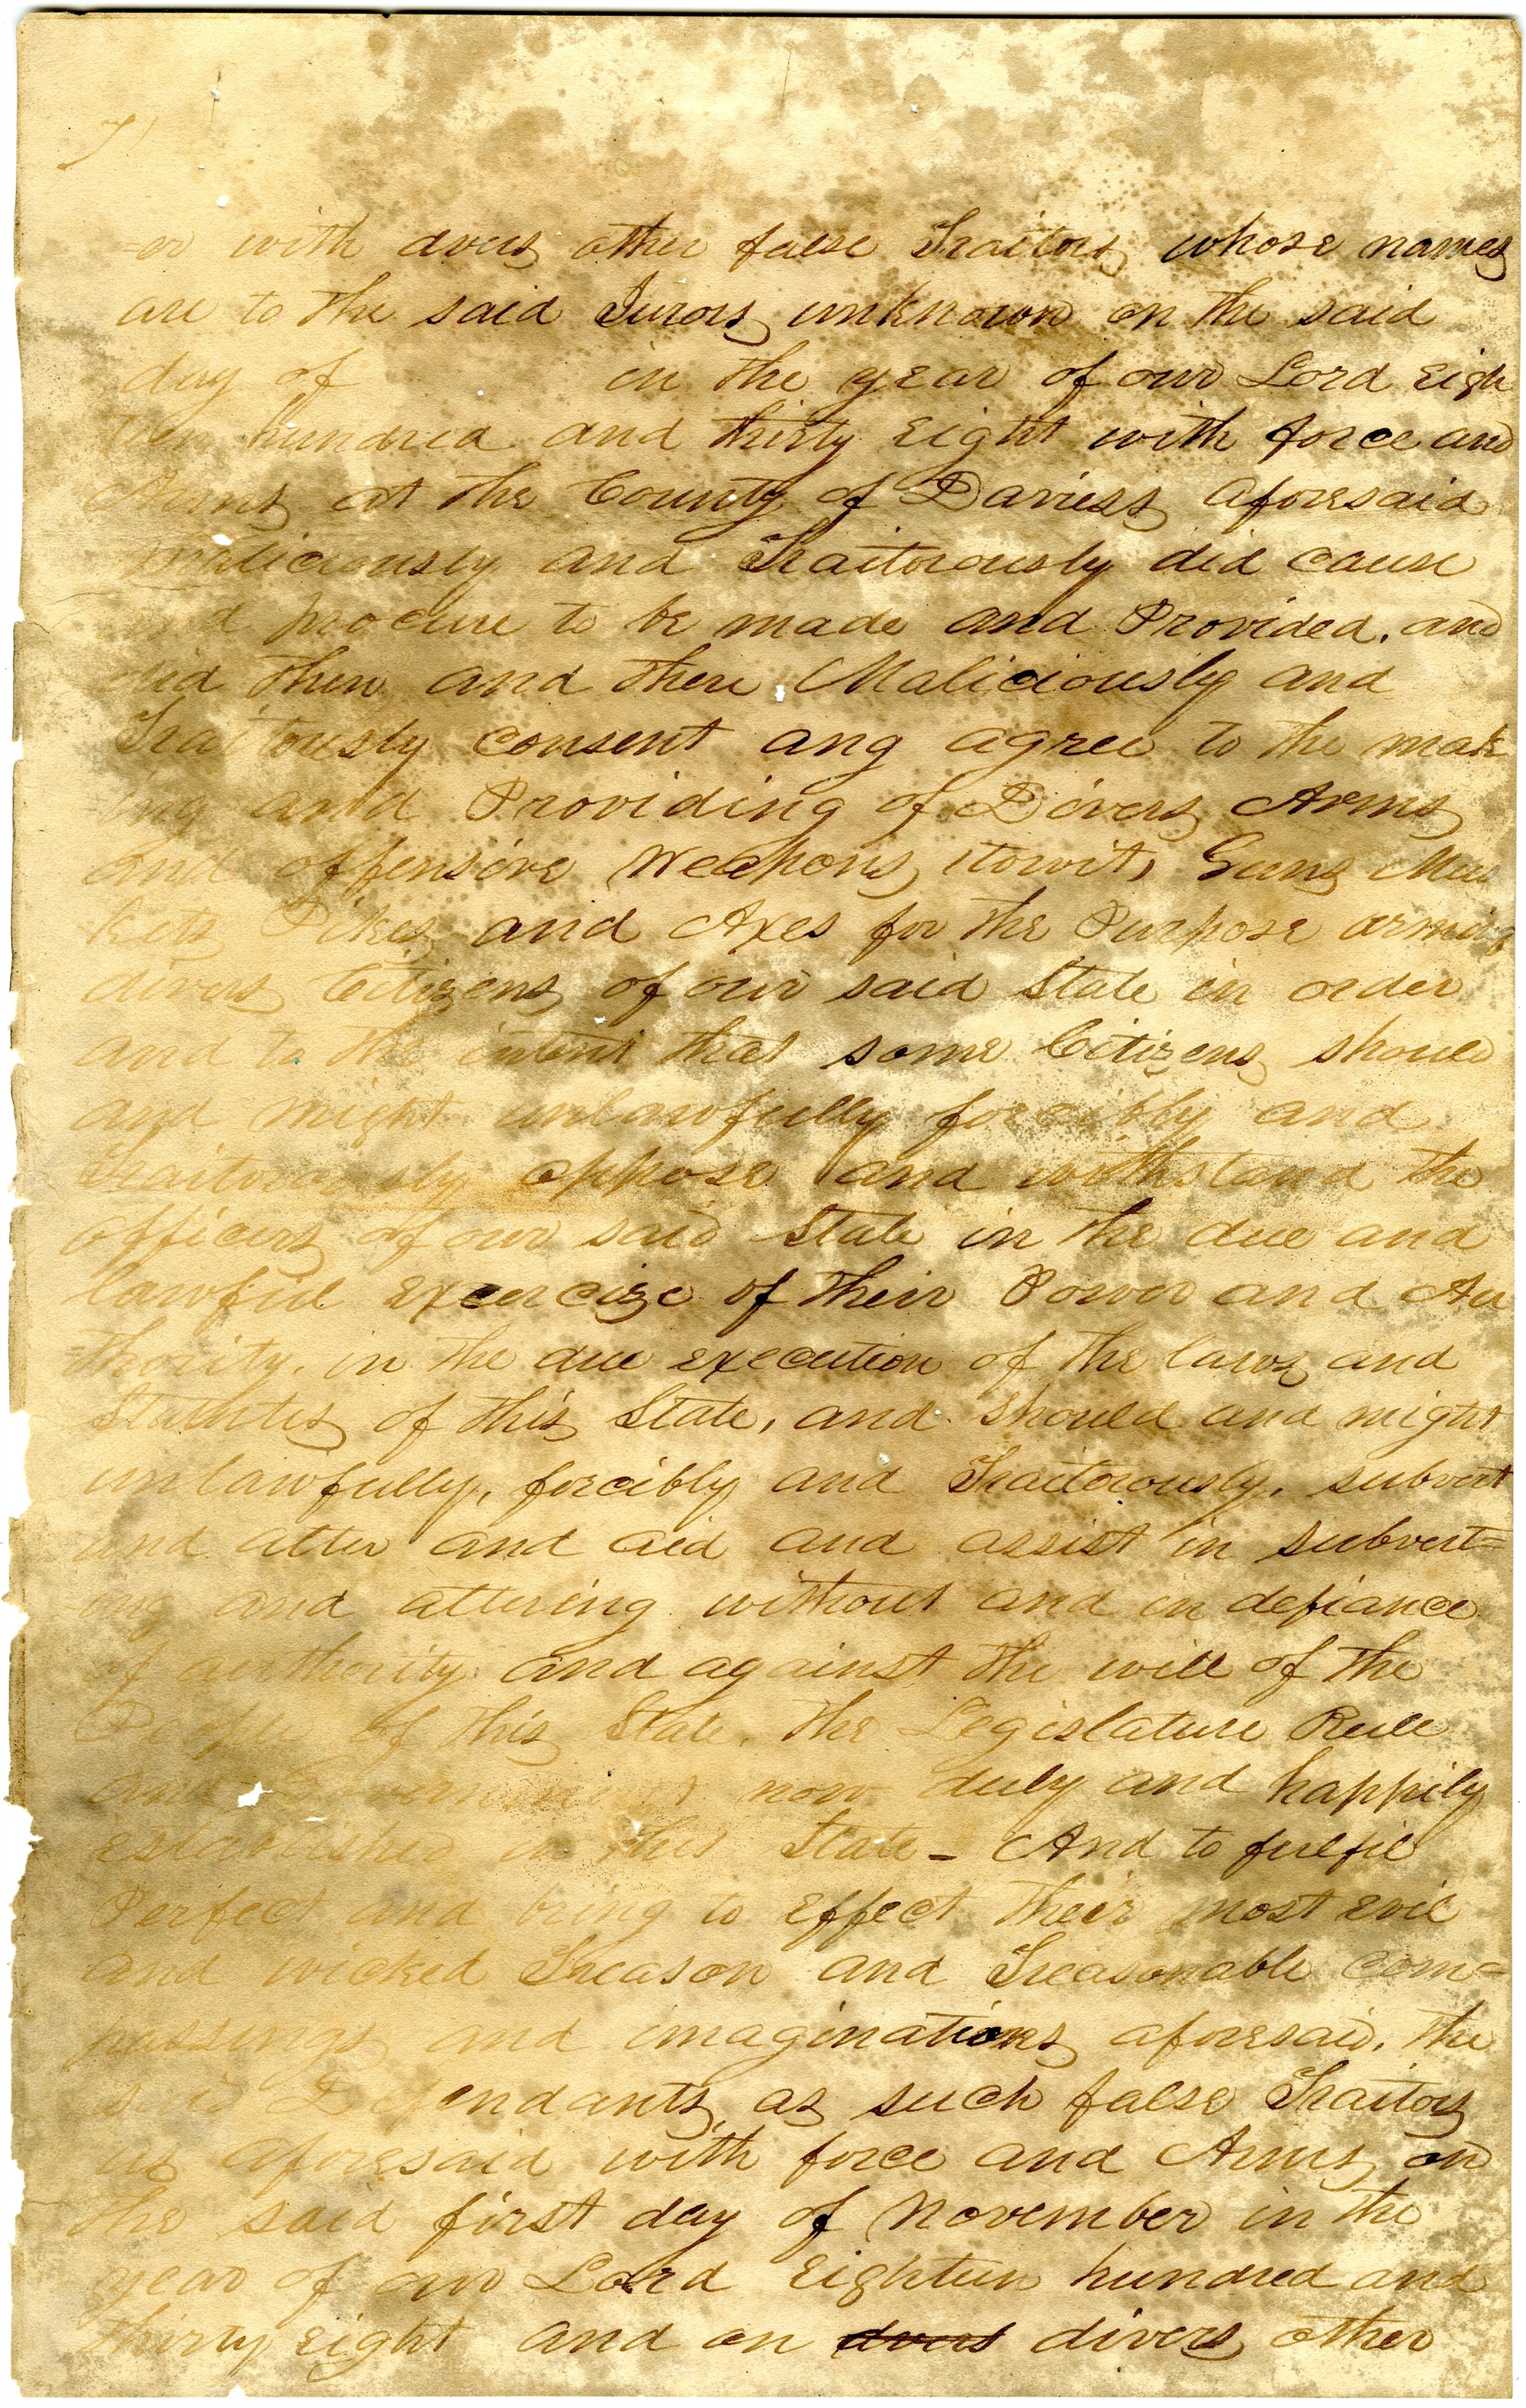 7
-er with dvers other false Traitors whose names
are to the said Jurors unknown on the said
day of in the year of our Lord Eigh
teen hundred and thirty Eight with force and
Arms at the County of Daviess aforesaid
maliciously and Traitorously did cause
and procure to be made and Provided, and
did then and there Maliciously and
Traitorously consent ang agree to the mak
ing and Providing of Divers Arms
and offensive Weapons, towit, Guns Mus
kets Pikes and Axes for the Purpose arming
divers Citizens of our said State in order
and to the intent that some Citizens should
and might unlawfully forcibly and
Traitorously oppose and withstand the
officers of our said State in the due and
lawful Exercize of their Power and Au
=thority, in the due execution of the laws and
Statutes of this State, and should and might
unlawfully, forcibly and Traitorously, subvert
and alter and aid and assist in subvert=
ing and altering without and in defiance
of authority and against the will of the
People of this State, the Legislature Rule
and Government now duly and happily
established in this State - And to fulfil
Perfect and bring to Effect their most evil
and wicked Treason and Treasonable com=
passings and imaginations aforesaid, the
said Defendants as such false Traitors
as aforesaid with force and Arms on
the said first day of November in the
year of our Lord Eighteen hundred and
thirty Eight and on dvers divers other